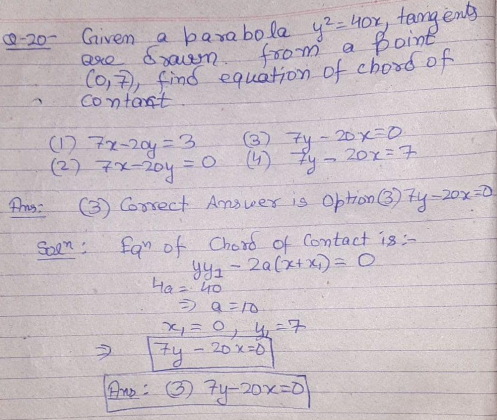 Q-20- Given a parabola y²=40x, tangents
are drawn from a point
(0,7), find equation of chord of
contact.
(1) 7x-20y=3 (3) 7y-20x=0
(2) 7x-20y=0 (4) 7y-20x=7
Ans: (3) Correct Answer is Option(3) 7y-20x=0
Solⁿ: Eqⁿ of Chord of Contact is:-
yy₁ - 2a(x+x₁) = 0
4a = 40
⇒ a=10
x₁ = 0, y₁=7
⇒ 7y - 20x=0
Ans: (3) 7y-20x=0